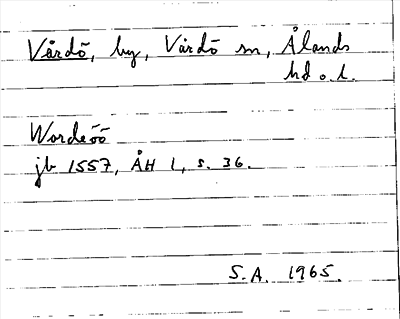 Vårdö, by, Vårdö sn, Ålands
hd o. l.
Wordeöö
jb 1557, ÅH 1, s. 36.
S.A. 1965.